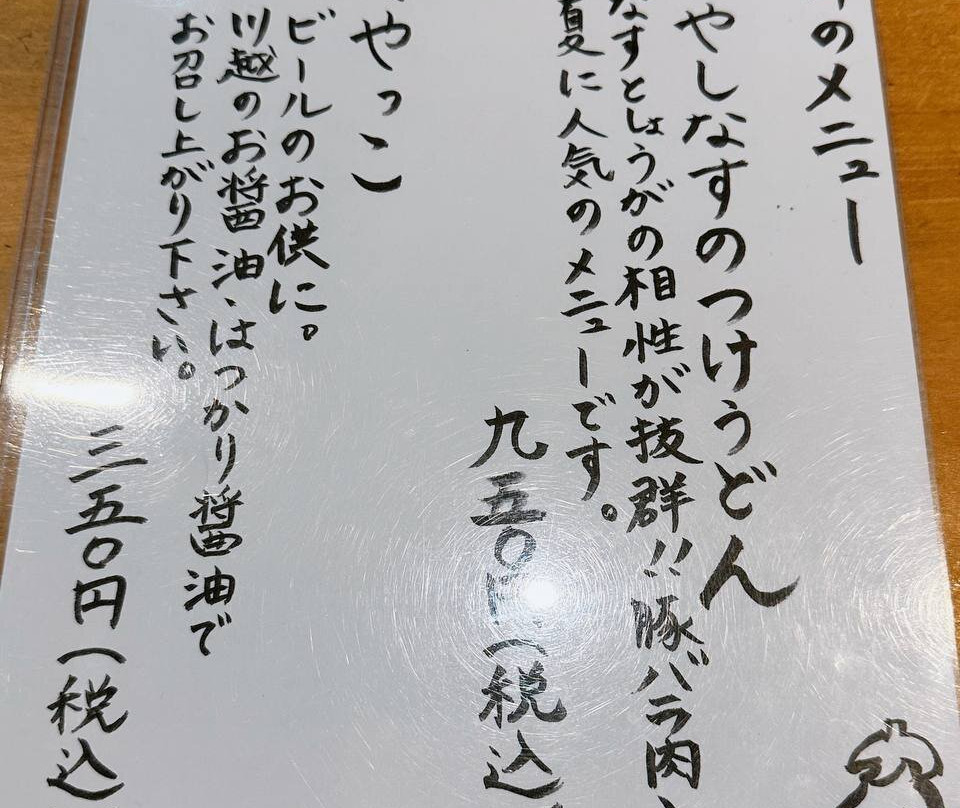 のメニュー
やしなすのつけうどん
なすとしょうがの相性が抜群!!豚バラ肉、
夏に人気のメニューです。
九五〇円(税込
やっこ
ビールのお供に。
川越のお醤油、はつかり醤油で
お召し上がり下さい。
三五〇円(税込